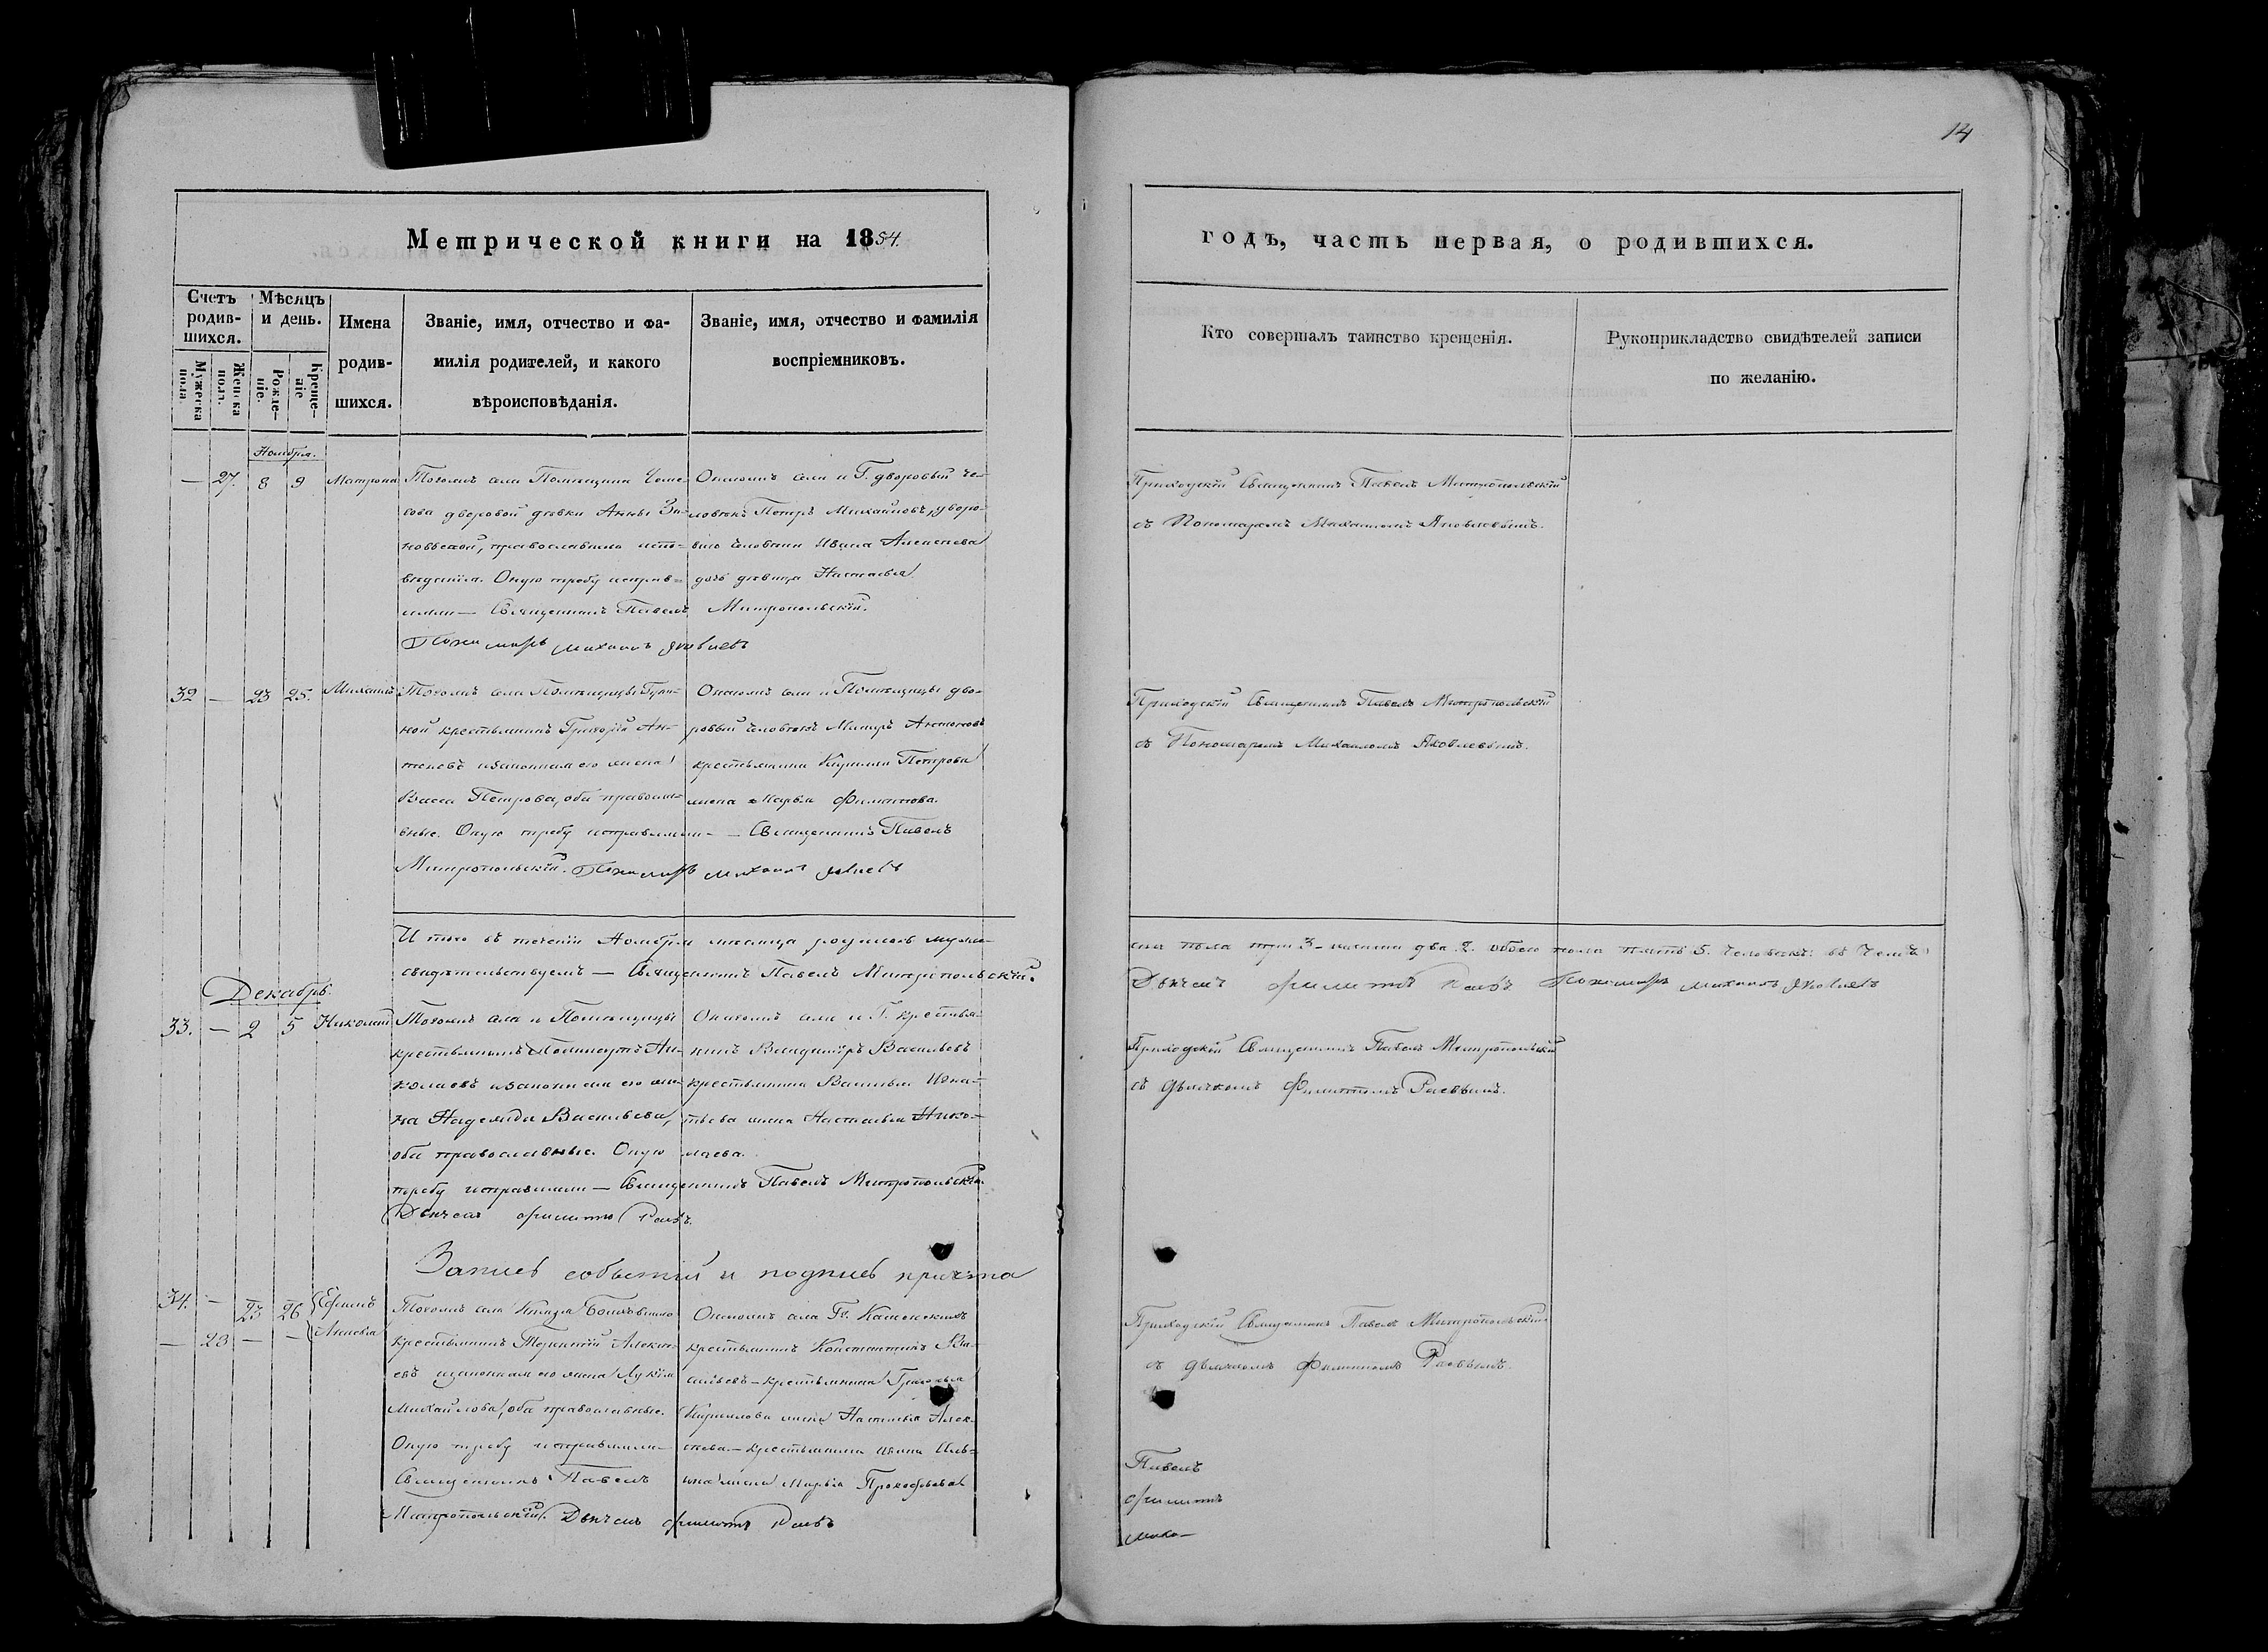 14
Метрической книги на 1854.
годъ, часть первая, о родившихся.
Счетъ родив-шихся.
Мужеска пола.
Женска пола.
Мѣсяцъ и день.
Рожде-ніе.
Креще-ніе
Имена родив-шихся.
Званіе, имя, отчество и фа-
милія родителей, и какого
вѣроисповѣданія.
Званіе, имя, отчество и фамилія
воспріемниковъ.
Кто совершалъ таинство крещенія.
Рукоприкладство свидѣтелей записи
по желанію.
Ноября.
— 27. 8 9 Матрона
Тогожъ села Помѣщика
дворовой дѣвки Анны Зи-
новьевой, православнаго испо-
вѣданія. Оную требу исправ-
ляли — Священникъ Павелъ Митропольскій.
Пономарь Михаилъ Яковлевъ
Онагожъ села и Г. дворовый че-
ловѣкъ Петръ Михайловъ, дворо-
ваго человѣка Ивана Алексѣева
дочь дѣвица Настасья
Приходскій Священникъ Павелъ Митропольскій
съ Пономаремъ Михаиломъ Яковлевымъ.
32 — 23 25. Михаилъ
Тогожъ села Помѣщицы
крестьянинъ Григорій Ан-
и законная его жена
Васса Петрова, оба православ-
ные. Оную требу исправляли — Священникъ Павелъ
Митропольскій. Пономарь Михаилъ Яковлевъ
Онагожъ села и Помѣщицы дво-
ровый человѣкъ Антоновъ
крестьянина Кирилы Петрова
жена Марья Филипова.
Приходскій Священникъ Павелъ Митропольскій
съ Пономаремъ Михаиломъ Яковлевымъ.
Итого въ теченіи Ноября мѣсяца родилось муже-
ска пола три 3 — женска два 2. обоего пола пять 5. человѣкъ: въ чемъ
свидѣтельствуемъ — Священникъ Павелъ Митропольскій.
Дьячекъ Филиппъ Раевъ Пономарь Михаилъ Яковлевъ
Декабрь.
33. — 2 5 Николай
Тогожъ села и Помѣщицы
крестьянинъ Ни-
колаевъ и законная его же-
на Надежда Васильева,
оба православные. Оную
требу исправляли — Священникъ Павелъ Митропольскій
Дьячекъ Филиппъ Раевъ.
Онагожъ села и Г. крестья-
нинъ Владиміръ Васильевъ
крестьянина Василья Игна-
тьева жена Настасья Нико-
лаева.
Приходскій Священникъ Павелъ Митропольскій
съ дьячкомъ Филиппомъ Раевымъ.
Запись событій и подпись причта
34. — 23 26 Ефимъ
— 28 — — Анисья
Тогожъ села Князя
крестьянинъ Терентій Алексѣ-
евъ и законная его жена Лукія
Михайлова, оба православные.
Оную требу исправляли —
Священникъ Павелъ
Митропольскій. Дьячекъ Филиппъ Раевъ
Онагожъ села Гг.
крестьянинъ Константинъ Ва-
сильевъ — крестьянина Григорья
Кирилова жена Настасья Алек-
сѣева — крестьянина Ивана Иль-
ина жена Марья Прокофьева
Приходскій Священникъ Павелъ Митропольскій
съ дьячкомъ Филиппомъ Раевымъ.
Павелъ
Филиппъ
Миха-